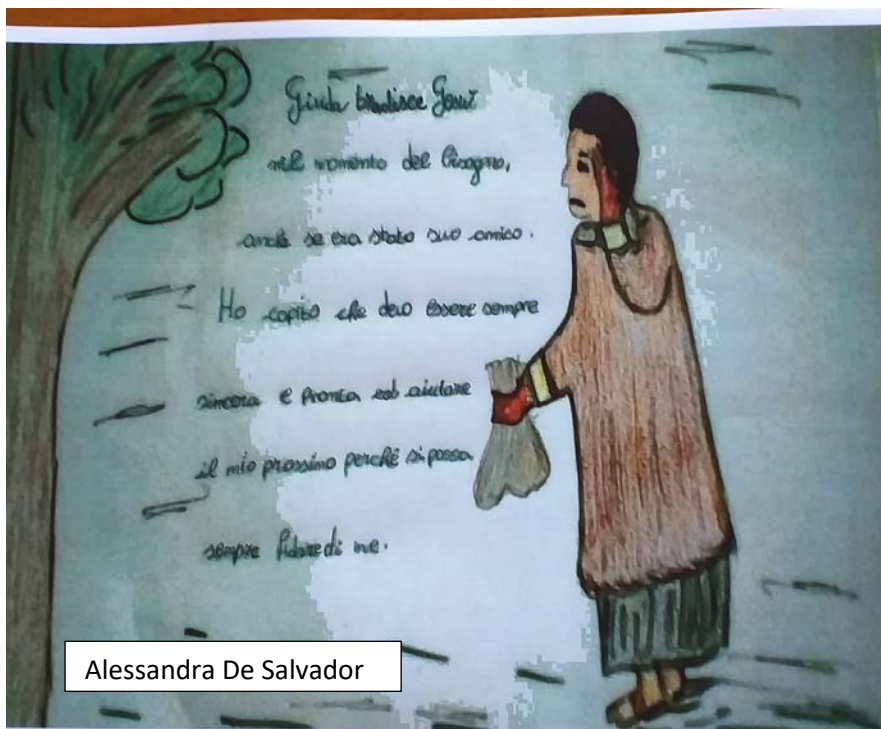 Giuda tradisce Gesù
nel momento del bisogno,
anche se era stato suo amico.
Ho capito che devo essere sempre
sincera e pronta ad aiutare
il mio prossimo perché si possa
sempre fidare di me.
Alessandra De Salvador